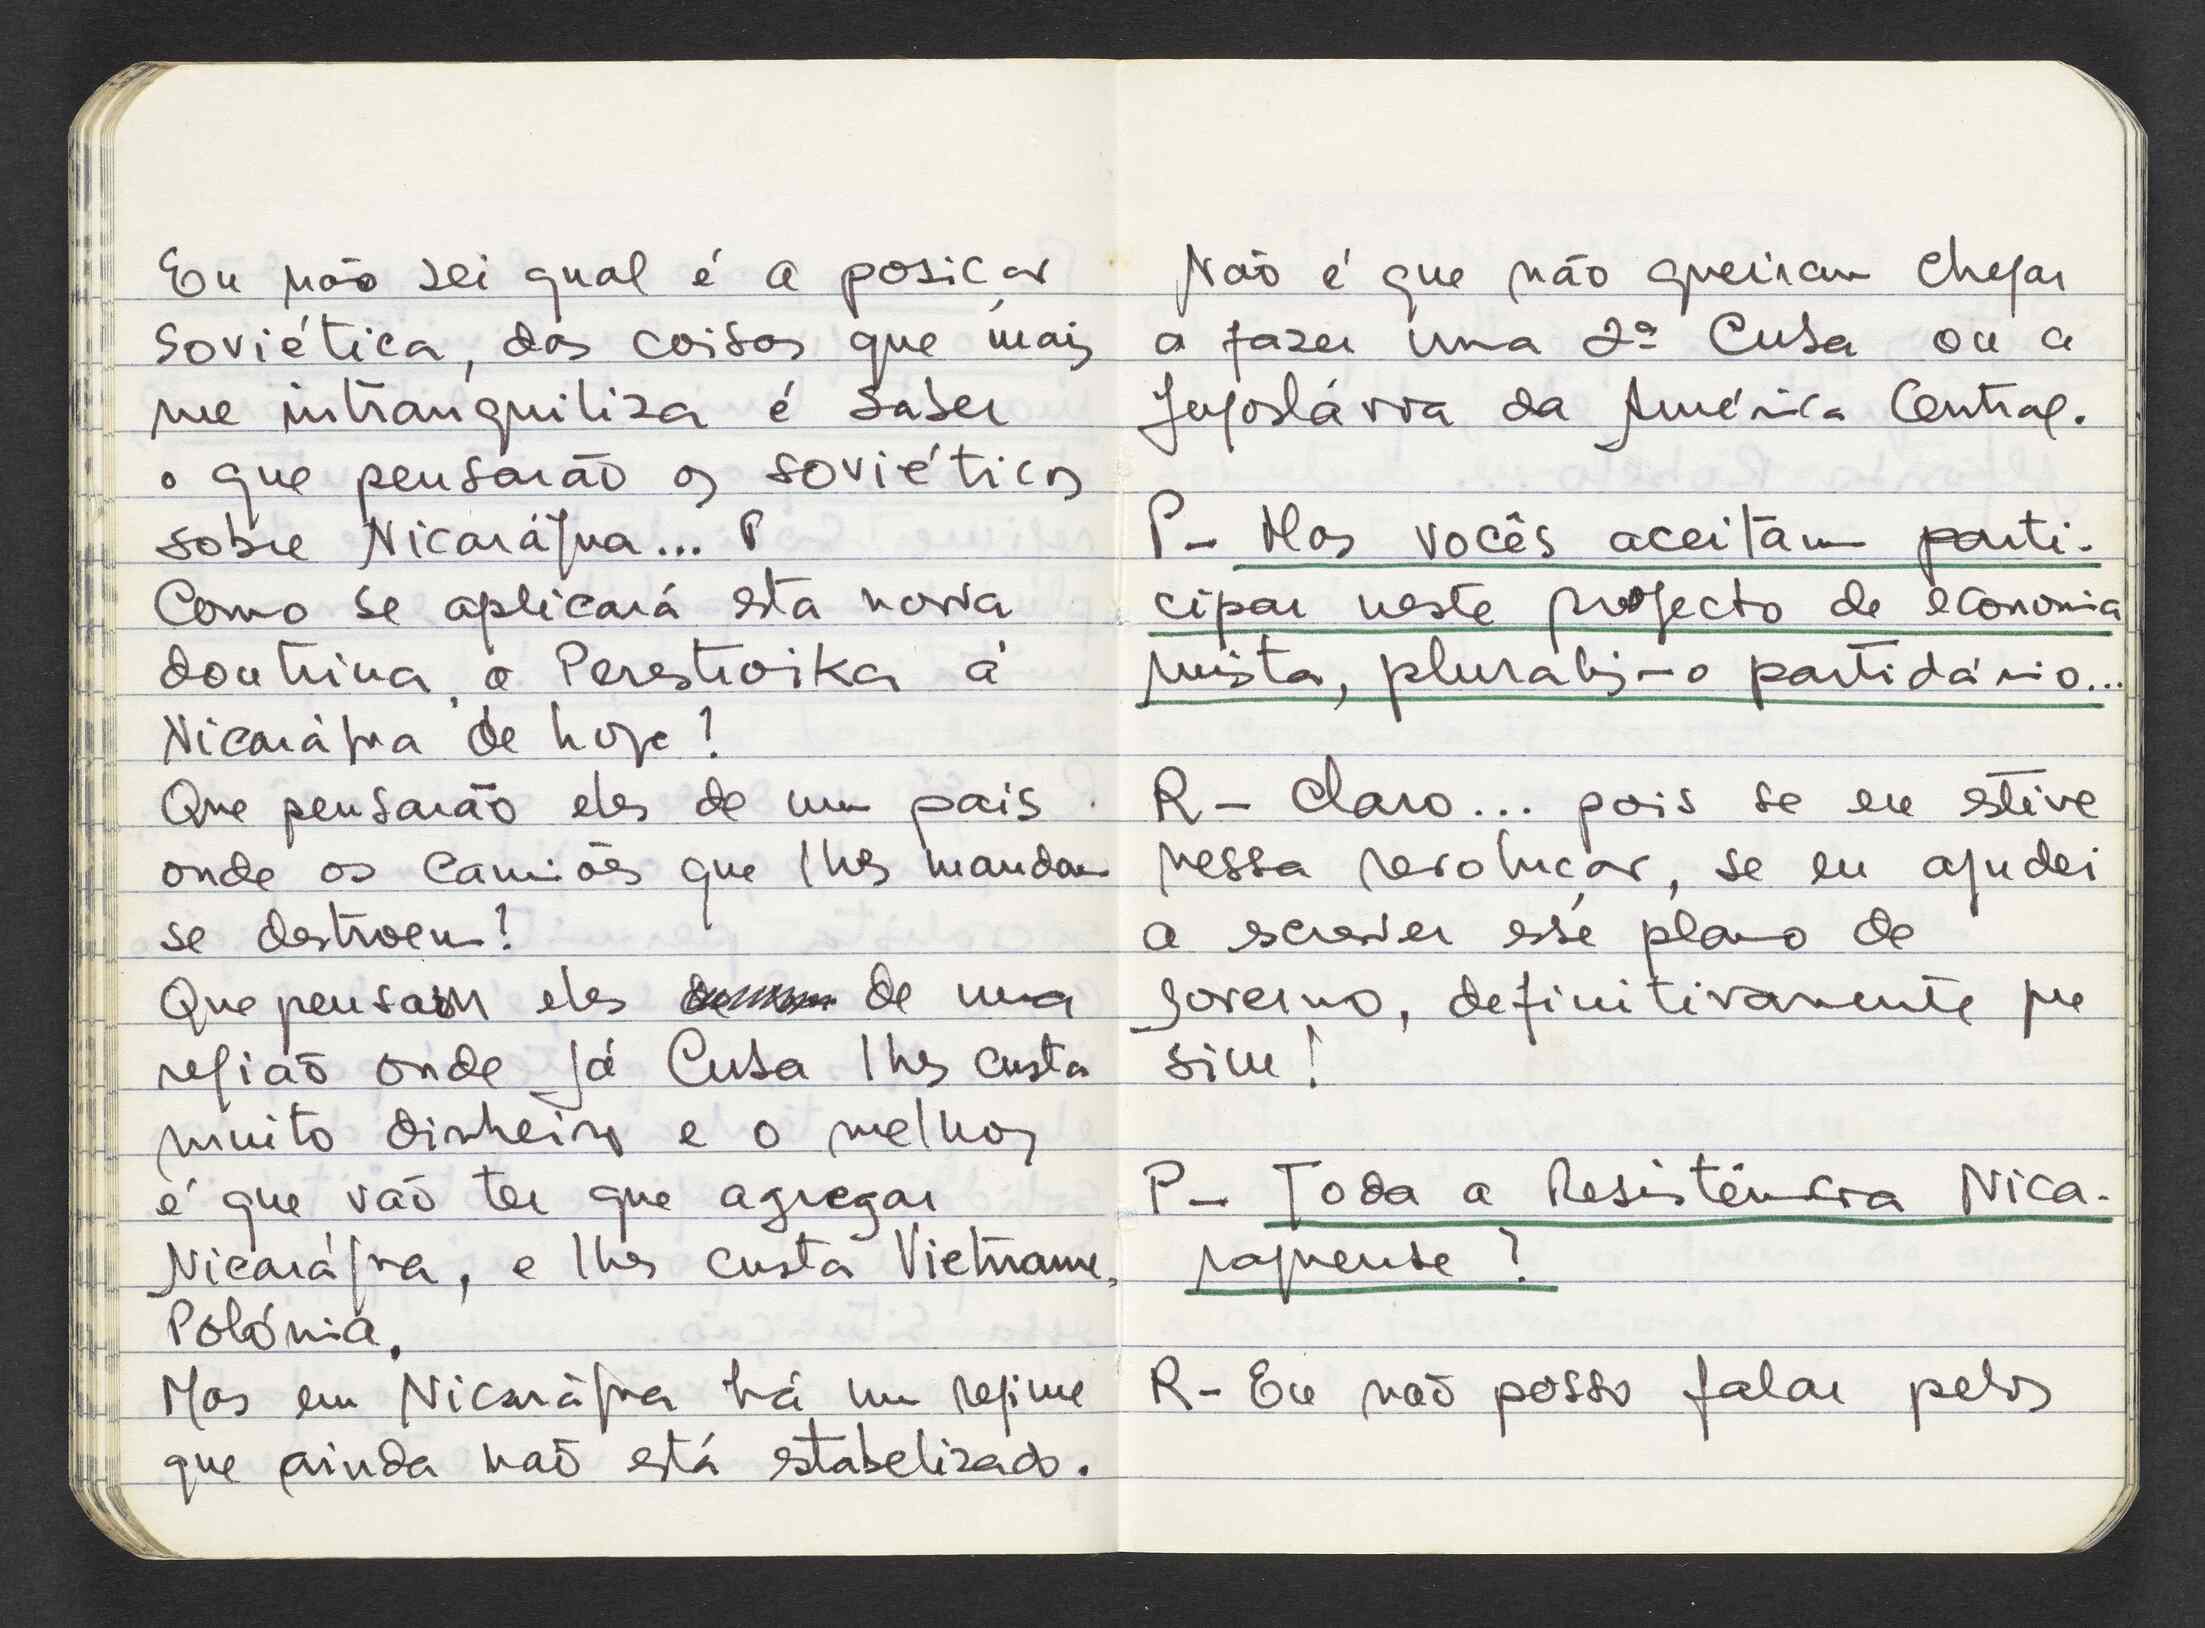 Eu não sei qual é a posição
soviética, das coisas que mais
me intranquiliza é saber
o que pensarão os soviéticos
sobre Nicarágua... ?
Como se aplicará esta nova
doutrina, a Perestroika á
Nicarágua de hoje?
Que pensarão eles de um pais
onde os camiões que lhes mandam
se destroem?
Que pensam eles de uma
região onde já Cuba lhes custa
muito dinheiro e o melhor
é que vão ter que agregar
Nicarágua, e lhes custa Vietname,
Polónia.
Mas em Nicarágua há um regime
que ainda não está estabelizado.
Não é que não queiram chegar
a fazer uma 2ª Cuba ou a
Jugoslávia da América Central.
P- Mas vocês aceitam parti-
cipar neste projecto de economia
mista, pluralismo partidário...
R- Claro... pois se eu estive
nessa revolução, se eu ajudei
a escrever esse plano de
governo, definitivamente que
sim!
P- Toda a Resistência Nica-
raguense?
R- Eu não posso falar pelos